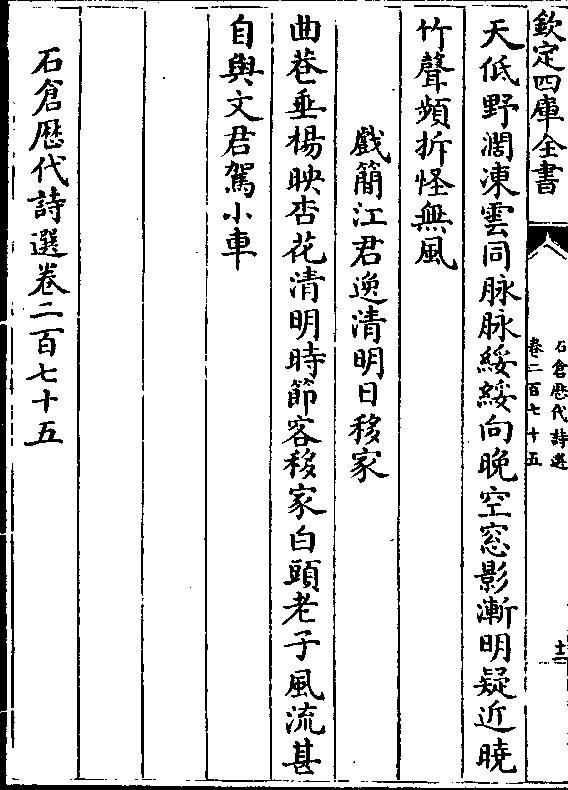 欽定四庫全書
石倉歴代詩選
卷二百七十五
十三
天低野濶凍雲同脉脉綏綏向晚空窓影漸明疑近曉
竹聲頻折怪無風
戲簡江君逸清明日移家
曲巷垂楊映杏花清明時節客移家白頭老子風流甚
自與文君駕小車
石倉歴代詩選卷二百七十五